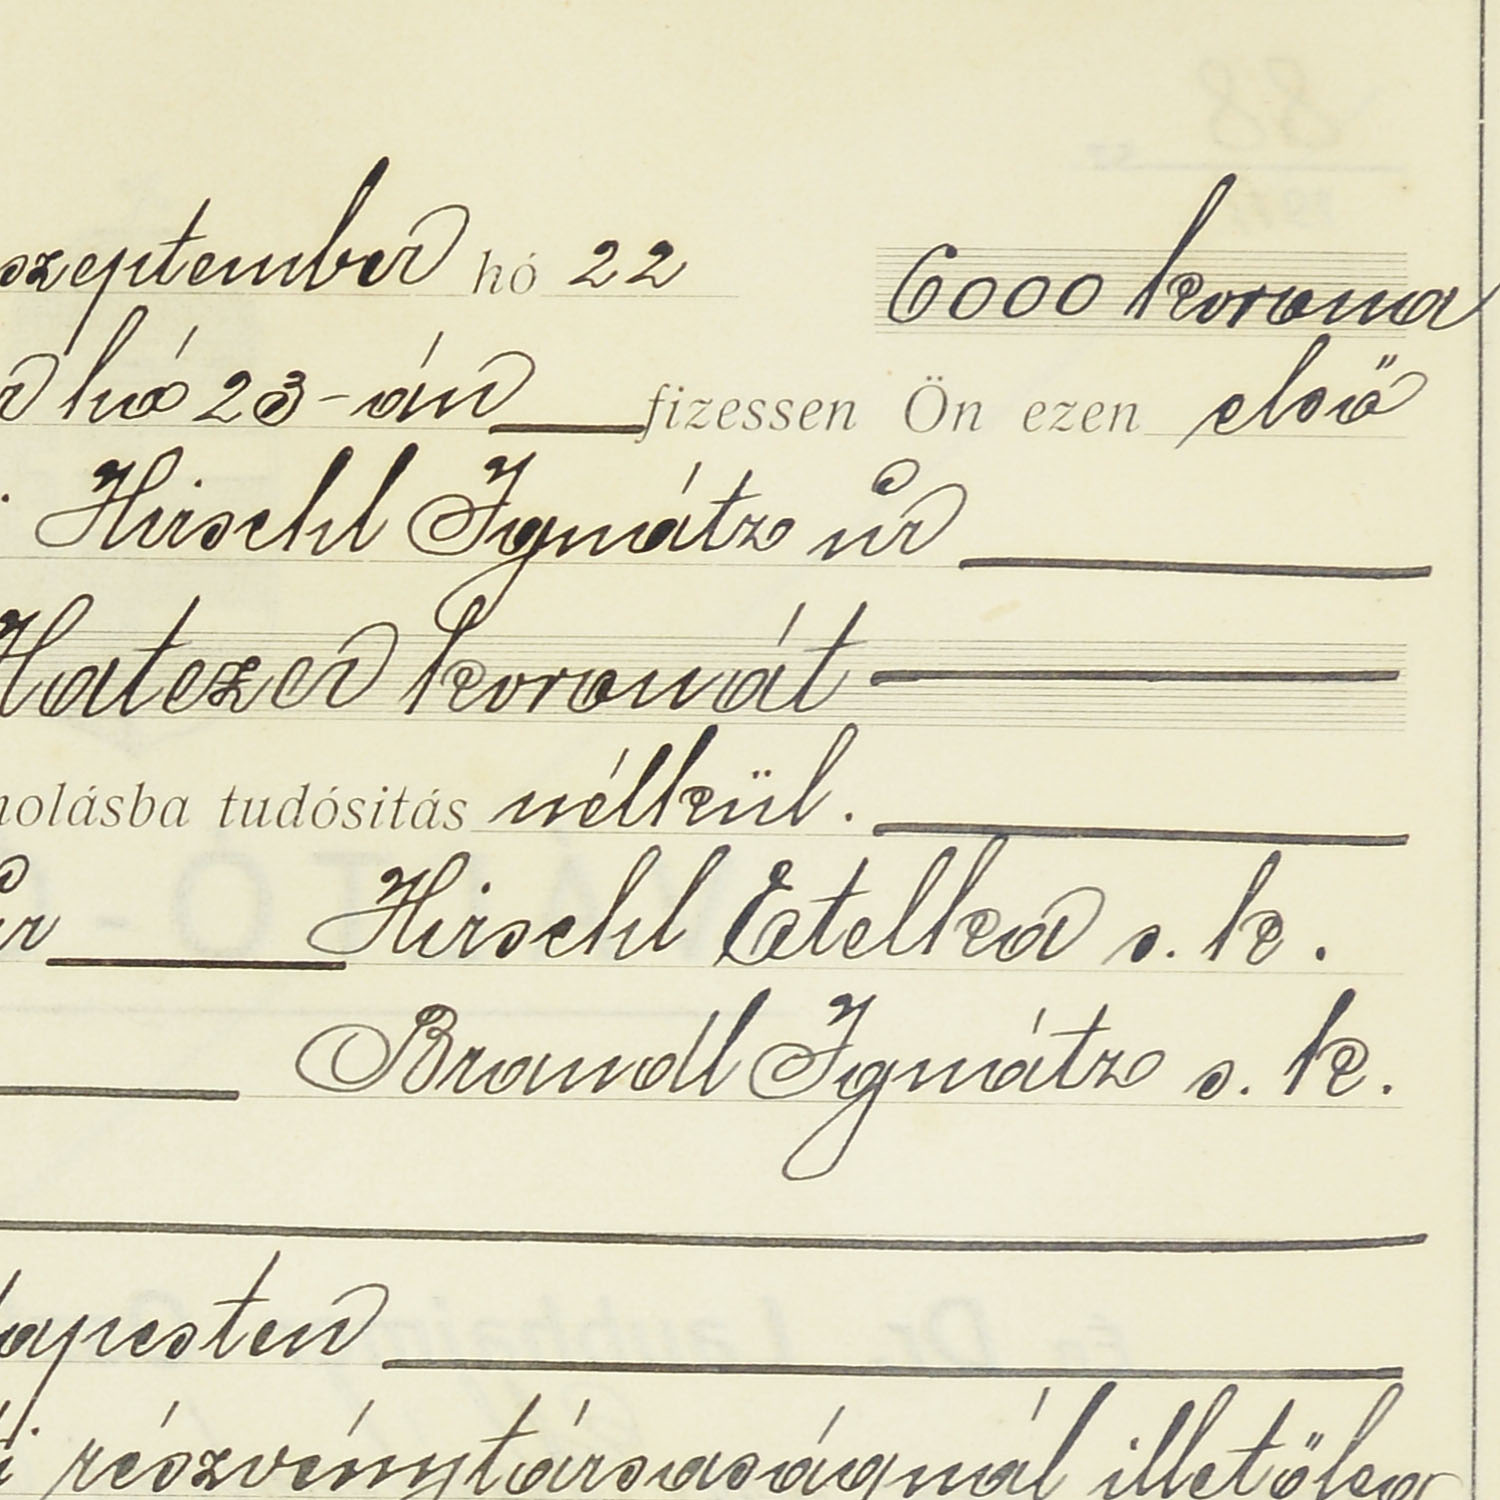 szeptember hó 22 6000 korona
hó 23-án fizessen Ön ezen első
Hirschl Ignátz úr
Hatezer koronát
molásba tudósitás nélkül.
úr Hirschl Etelka s. k.
Brandl Ignátz s. k.
dapesten
részvénytársaságnál illetőleg